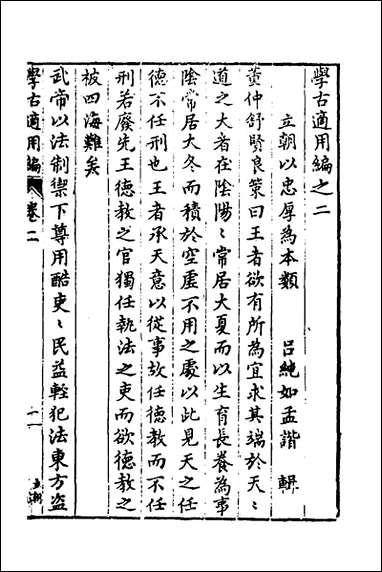 學古適用編之二
立朝以忠厚為本類　呂純如孟諧　輯
董仲舒賢良策曰王者欲有所為宜求其端於天〻
道之大者在陰陽〻常居大夏而以生育長養為事
陰常居大冬而積於空虛不用之處以此見天之任
德不任刑也王者承天意以從事故任德教而不任
刑若廢先王德教之官獨任執法之吏而欲德教之
被四海難矣
武帝以法制禦下尊用酷吏〻民益輕犯法東方盜
學古適用編　卷二